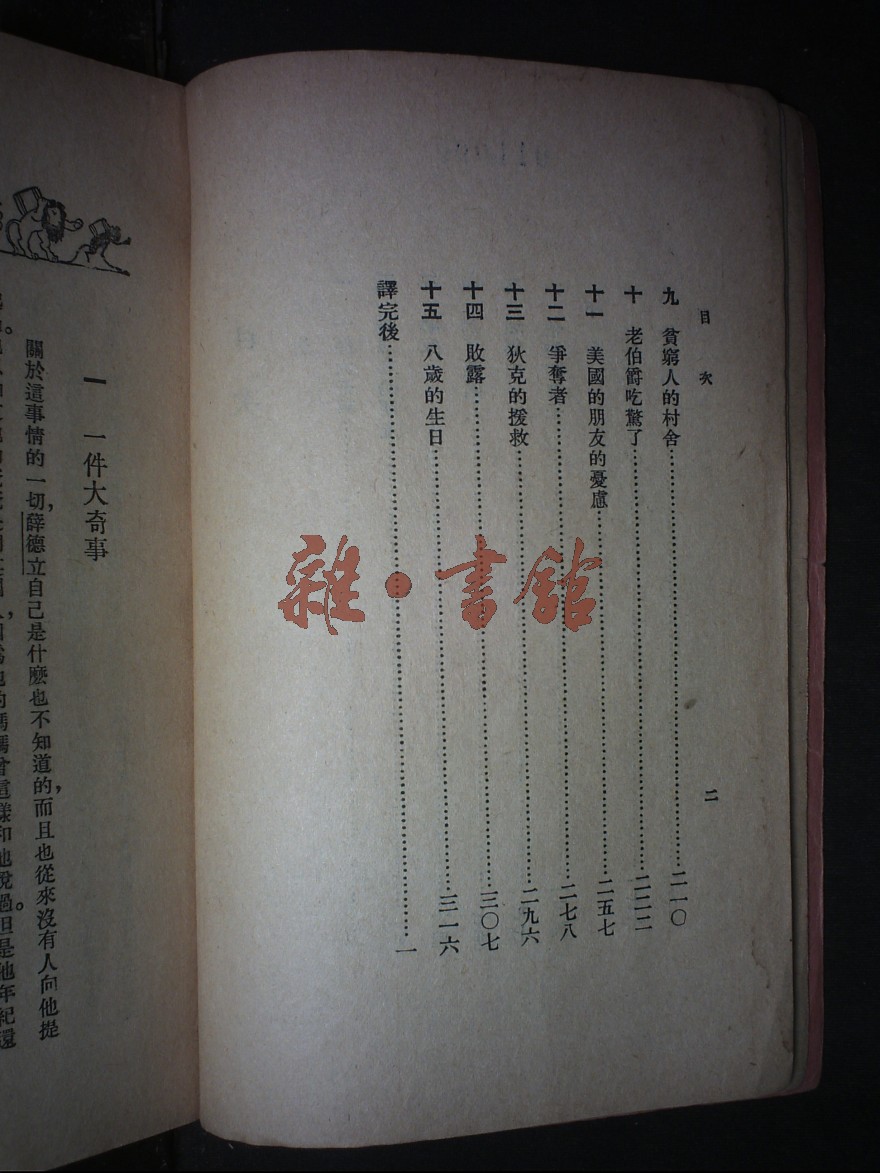 目次
二
九 貧窮人的村舍……二一〇
十 老伯爵吃驚了……二二二
十一 美國的朋友的憂慮……二五七
十二 爭奪者……二七八
十三 狄克的援救……二九六
十四 敗露……三〇七
十五 八歲的生日……三一六
譯完後……一
雜·書館
一 一件大奇事
關於這事情的一切，薛德立自己是什麽也不知道的，而且也從來沒有人向他提
媽媽曾這樣和他說過。但是他年紀還